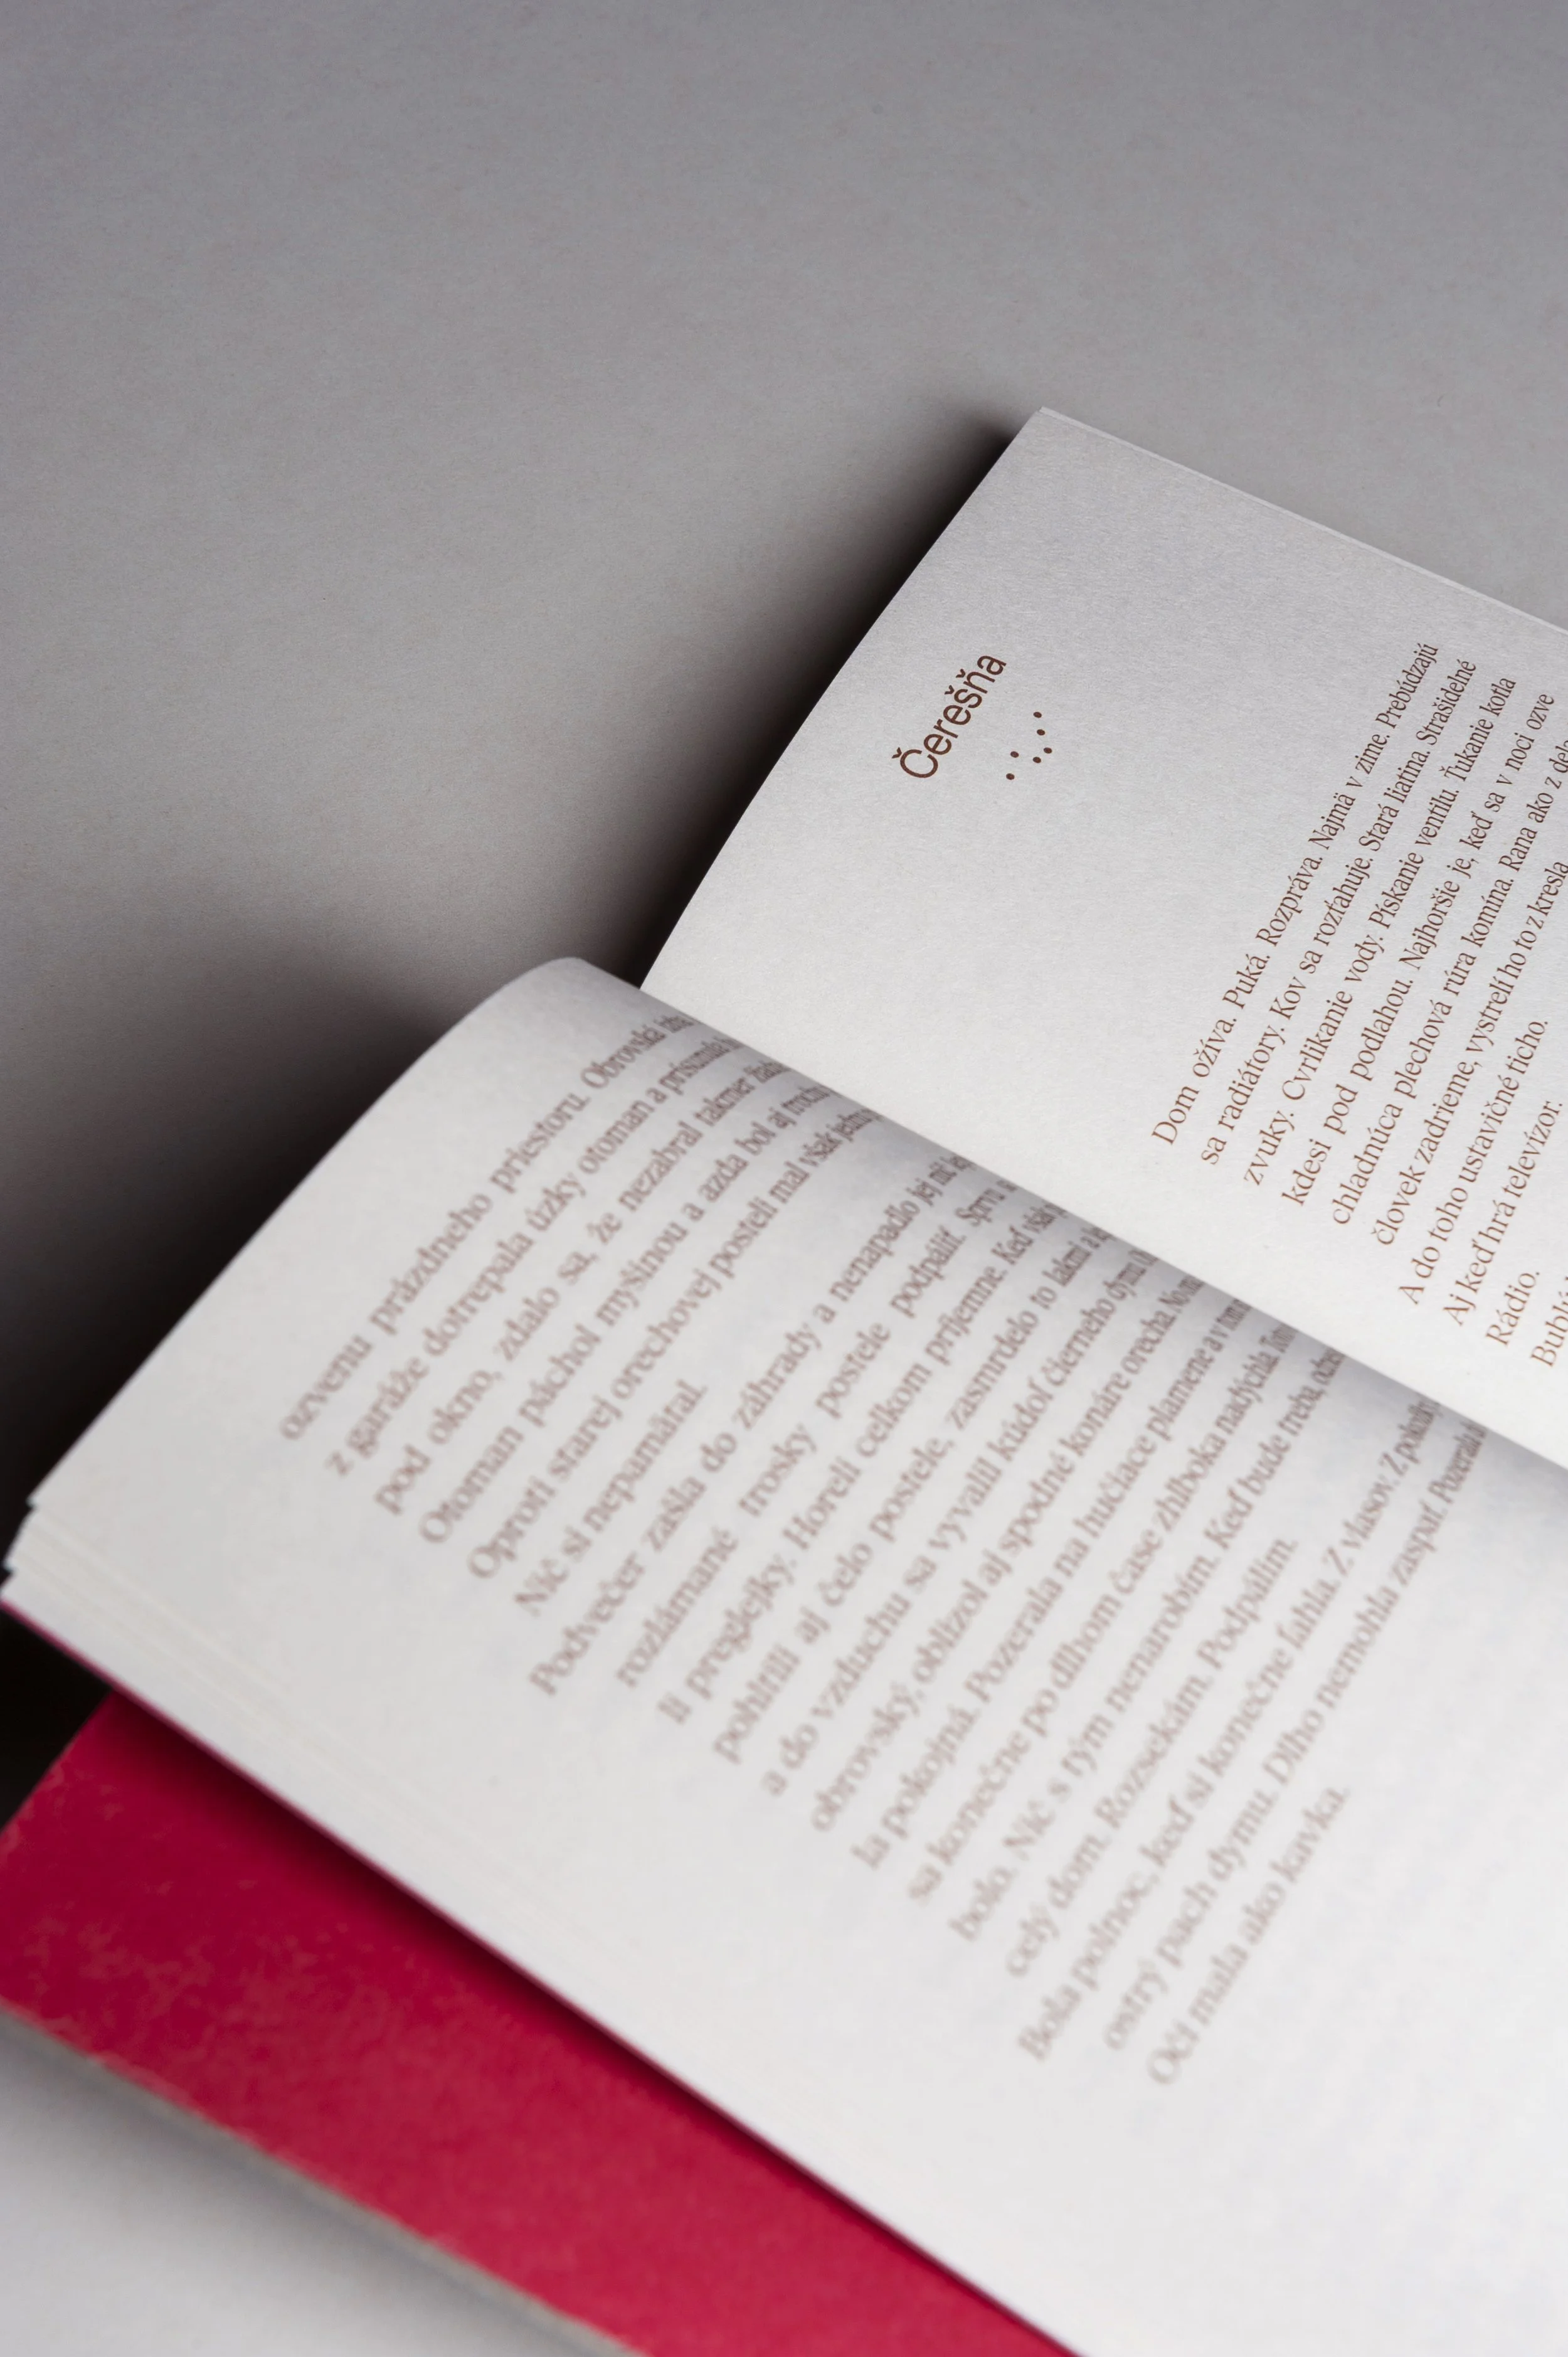 ozvenu prázdneho priestoru. Obrovská izba
z garáže dotrepala úzky otoman a prisunula
pod okno, zdalo sa, že nezabral takmer
Otoman páchol myšinou a azda bol aj trochu
Oproti starej orechovej posteli mal však jednu
Nič si nepamätal.
Podvečer zašla do záhrady a nenapadlo jej nič
rozlámané trosky postele podpáliť. Sprvu
li preglejky. Horeli celkom príjemne. Keď však
pohltili aj čelo postele, zasmrdelo to lakmi a
a do vzduchu sa vyvalil kúdoľ čierneho dymu
obrovský, oblizol aj spodné konáre orecha.
la pokojná. Pozerala na hučiace plamene a v
sa konečne po dlhom čase zhlboka nadýchla.
bolo. Nič s tým nenarobím. Keď bude treba,
celý dom. Rozsekám. Podpálim.
Bola polnoc, keď si konečne ľahla. Z vlasov. Z
ostrý pach dymu. Dlho nemohla zaspať. Pozerala
Oči mala ako kavka.
Čerešňa
Dom ožíva. Puká. Rozpráva. Najmä v zime. Prebúdzajú
sa radiátory. Kov sa rozťahuje. Stará liatina. Strašidelné
zvuky. Cvrlikanie vody. Pískanie ventilu. Ťukanie kotla
kdesi pod podlahou. Najhoršie je, keď sa v noci ozve
chladnúca plechová rúra komína. Rana ako z dela
človek zadrieme, vystrelí ho to z kresla
A do toho ustavičné ticho.
Aj keď hrá televízor.
Rádio.